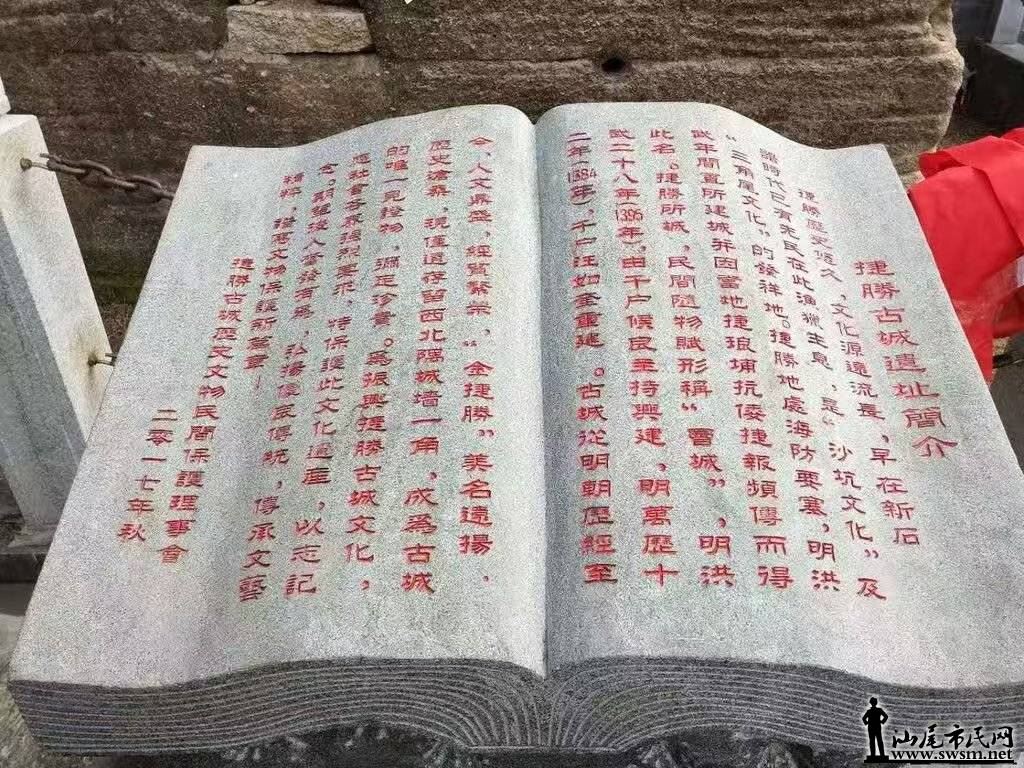 捷勝古城遺址簡介
捷勝歷史悠久，文化源遠流長，早在新石
器時代已有先民在此漁獵生息，是“沙坑文化”及
“三角尾文化”的發祥地。捷勝地處海防要塞，明洪
武年間置所建城并因當地捷琅埔抗倭捷報頻傳而得
此名。捷勝所城，民間隨物賦形稱“曹城”，明洪
武二十八年（1395年），由千户候良主持興建，明萬歷十
二年（1584年），千户汪如金重建。古城從明朝歷經至
今，人文鼎盛，經貿繁榮，“金捷勝”美名遠揚，
歷史滄桑，現僅遺存留西北隅城墙一角，成爲古城
的唯一見證物，彌足珍貴。爲振興捷勝古城文化，
應社會各界强烈要求，特保護此文化遺産，以志記
念。期望後人奮發有爲，弘揚優良傳統，傳承文藝
精粹，譜寫文物保護新篇章！
捷勝古城歷史文物民間保護理事會
二零一七年秋
汕尾市民网
www.swsm.net